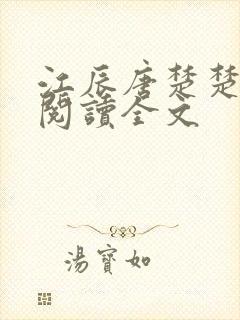 江辰唐楚楚
閱讀全文
湯寶如